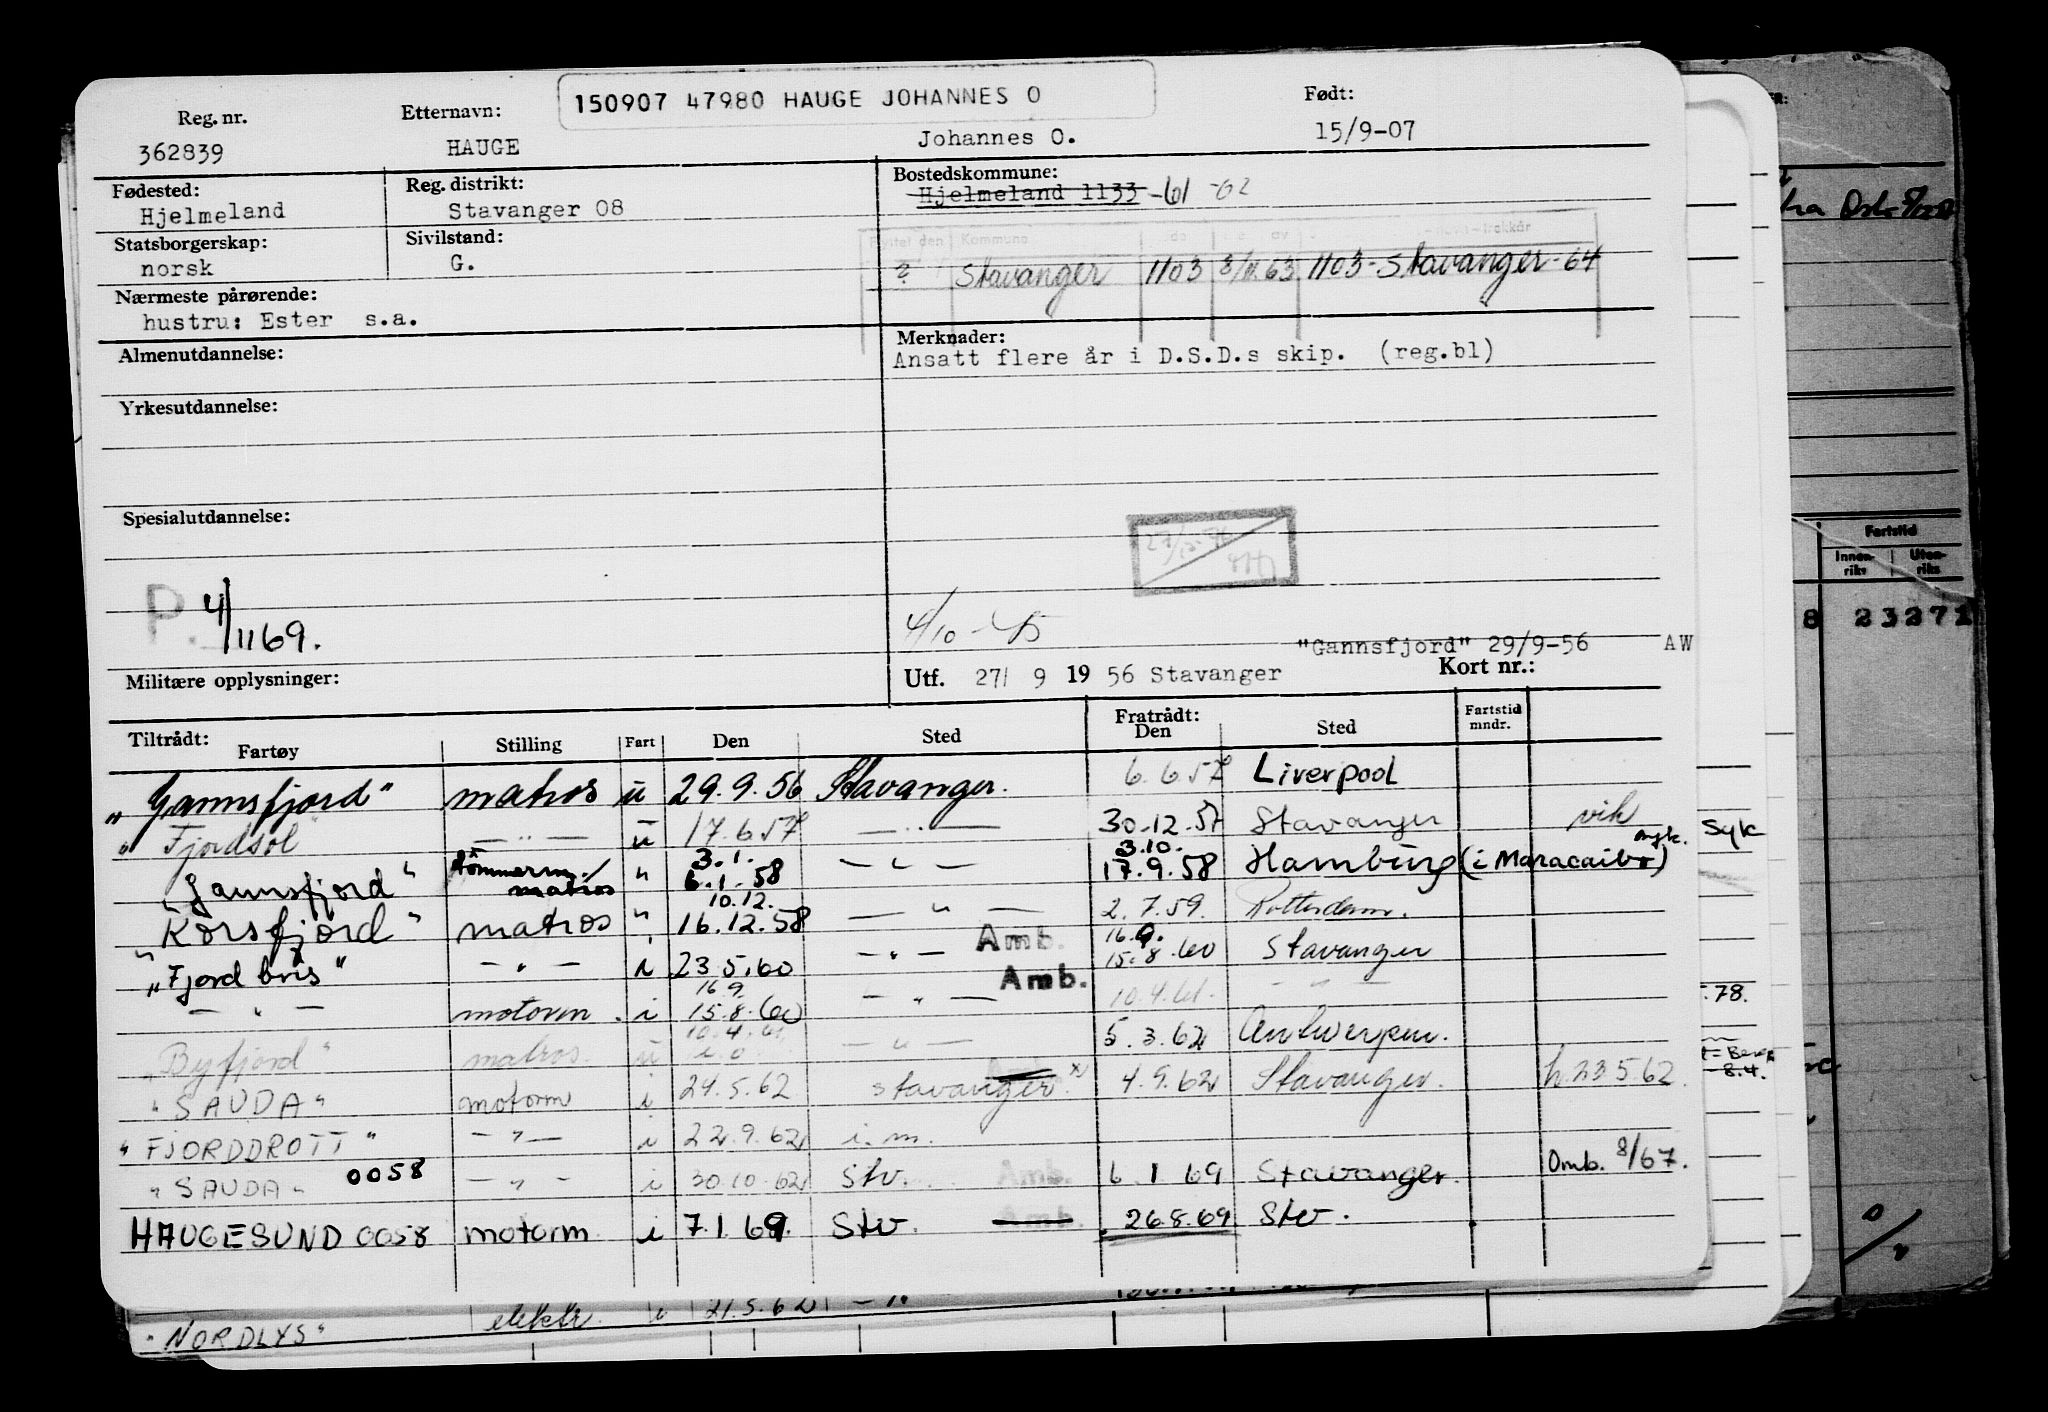 150907 47980 HAUGE JOHANNES O
Reg. nr. Etternavn: Født:
362839 HAUGE Johannes O. 15/9-07
Fødested: Reg. distrikt: Bostedskommune:
Hjelmeland Stavanger 08 Hjelmeland 1133 -61 -62
Statsborgerskap: Sivilstand:
Flyttet den Kommune
norsk G. ? Stavanger 1103 3/11.63 1103-Stavanger-64
Nærmeste pårørende:
hustru: Ester s.a.
Almenutdannelse: Merknader:
Ansatt flere år i D.S.D.s skip. (reg.bl)
Yrkesutdannelse:
Spesialutdannelse:
P. 4/1169.
4/10-45
"Gannsfjord" 29/9-56 AW
Militære opplysninger: Utf. 27/ 9 19 56 Stavanger Kort nr.:
Tiltrådt: Fratrådt: Fartstid
Fartøy Stilling Fart Den Sted Den Sted mndr.
"Gannsfjord" matros u 29.9.56 Stavanger. 6.6.57 Liverpool
"Fjordsol" — " — u 17.6.57 — " — 30.12.57 Stavanger vik
3.1. 3.10. mgk.
"Gannsfjord" tömmerm./matros " 6.1.58 — " — 17.9.58 Hamburg (i Maracaibo)
10.12.
"Korsfjord" matros " 16.12.58 — " — 2.7.59. Rotterdam.
Amb. 16.9.
"Fjord bris" — " — i 23.5.60 — " — 15.8.60 Stavanger
16.9. Amb.
— " — motorm. i 15.8.60 — " — 10.4.61. — " —
10.4.61
"Byfjord" matros. u — " — 5.3.62 Antwerpen.
"SAUDA" motorm i 24.5.62 Stavanger x) 4.9.62 Stavanger. h.23.5.62
"FJORDDROTT" — " — i 22.9.62 i.m.
"SAUDA" 0058 — " — i 30.10.62 Stv. Amb. 6.1.69 Stavanger. Omb. 8/67.
HAUGESUND 0058 motorm i 7.1.69 Stv. Amb. 26.8.69 Stv.
"NORDLYS" elektr. 21.5.62 — " —
Syk
.78.
8.4.
Fartstid
Innen-riks Uten-riks
8 23271